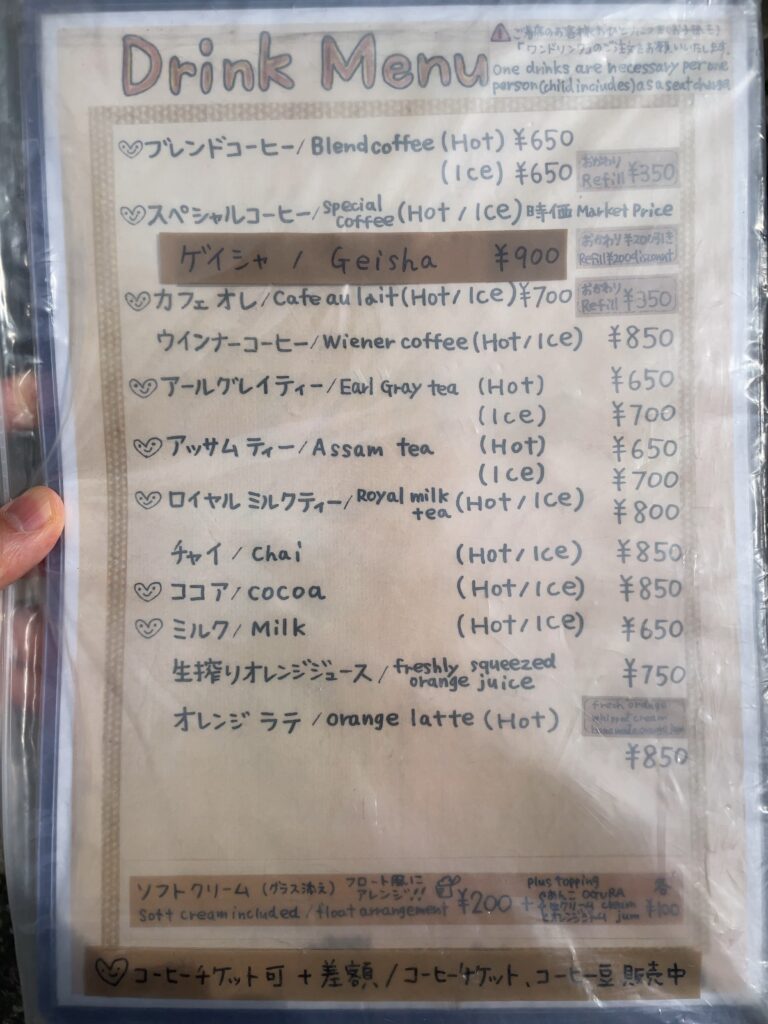 Drink Menu
⚠ご着席のお客様お一人につき(お子様も)
「ワンドリンク」のご注文をお願いいたします。
one drinks are necessary per one
person (child includes) as a seat charge
♡ブレンドコーヒー/Blend coffee (Hot) ¥650
(Ice) ¥650 おかわり Refill ¥350
♡スペシャルコーヒー/special coffee (Hot/Ice) 時価 Market Price
ゲイシャ / Geisha ¥900
おかわり ¥200引き
Refill ¥200 discount
♡カフェオレ/Cafe au lait (Hot/Ice) ¥700 おかわり Refill ¥350
ウインナーコーヒー/Wiener coffee (Hot/Ice) ¥850
♡アールグレイティー/Earl Gray tea (Hot) ¥650
(Ice) ¥700
♡アッサムティー/Assam tea (Hot) ¥650
(Ice) ¥700
♡ロイヤルミルクティー/Royal milk tea (Hot/Ice) ¥800
チャイ/chai (Hot/Ice) ¥850
♡ココア/cocoa (Hot/Ice) ¥850
♡ミルク/Milk (Hot/Ice) ¥650
生搾りオレンジジュース/freshly squeezed orange juice ¥750
オレンジラテ/orange latte (Hot)
fresh orange
whipped cream
homemade orange jam
¥850
ソフトクリーム (グラス添え) フロート風にアレンジ!! ¥200
Soft cream included / float arrangement
+ plus topping
あんこ OGURA
生クリーム cream
オレンジジャム jum
各 ¥100
♡コーヒーチケット可 + 差額 / コーヒーチケット、コーヒー豆 販売中